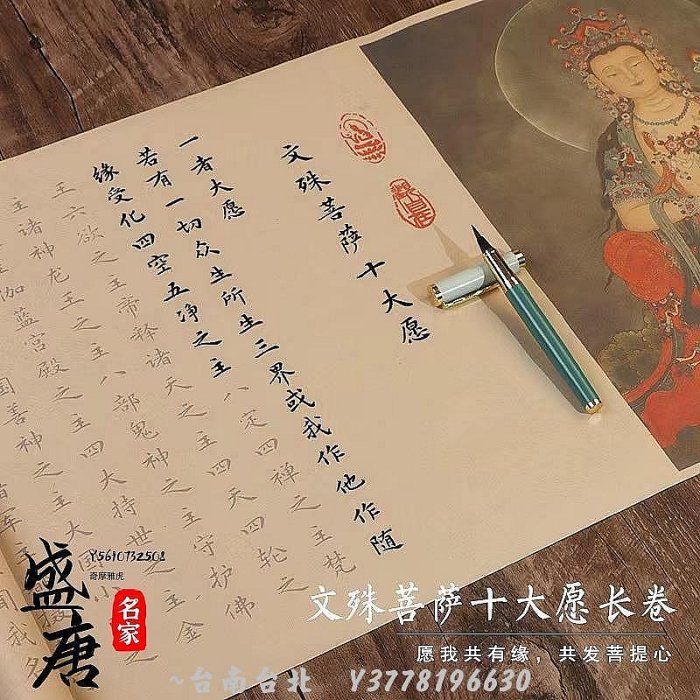 文殊菩萨十大愿
一者大愿
若有一切众生所生三界或我作他作随
缘受化四空五净之主八定四禅之主梵
王六欲之主帝释诸天之主四天四轮之
主诸神龙王之主八部鬼神之主守护佛
主伽蓝宫殿之主四大持世之主金
国善神之主大国小
Y5610732508
奇摩雅虎
盛唐
名家
文殊菩萨十大愿长卷
愿我共有缘，共发菩提心
~台南台北 Y3778196630